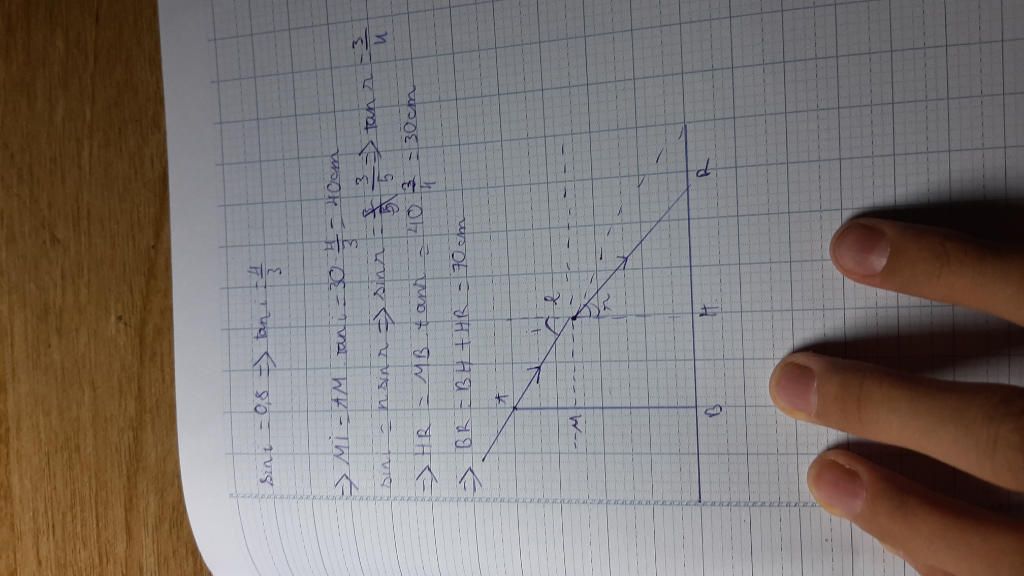 sini = 0,8 => tani = 4/3
=> MI = AM tani = 30 4/3 = 40cm
sini = n sinr => sinr = 3/5 => tanr = 3/4
=> HR = MB tanr = 40 3/4 = 30cm
=> BR = BH + HR = 70cm
A
i
M
r
B
H
R